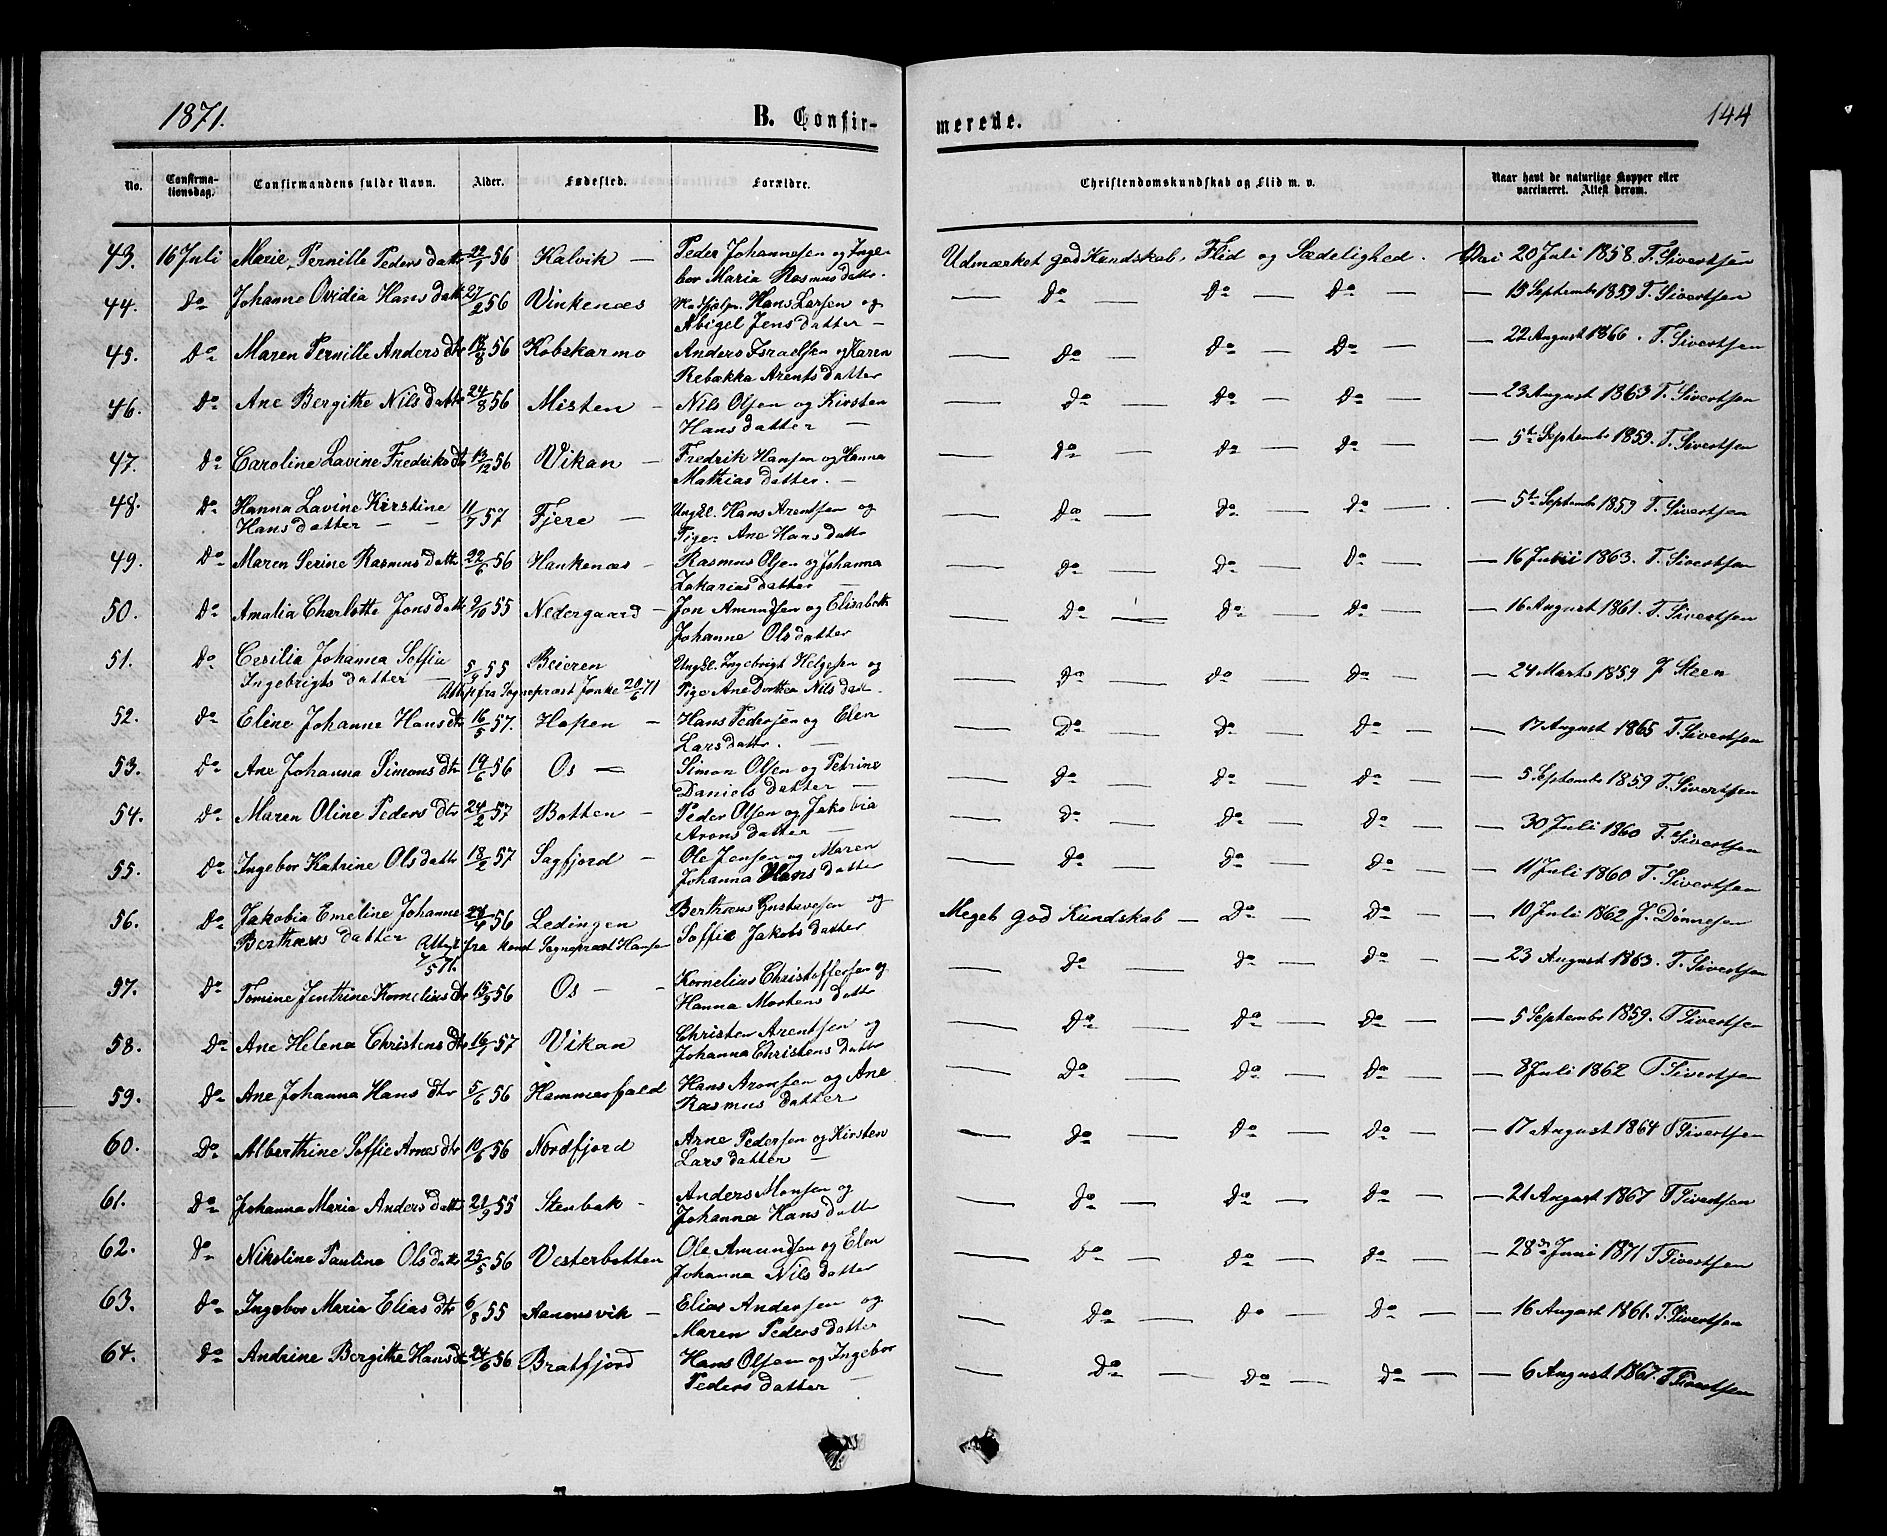 1871.
B. Confir-
merede.
144
No.
Confirma-
tionsdag.
Confirmandens fulde Navn.
Alder.
Fødested.
Forældre.
Christendomskundskab og Flid m. v.
Naar havt de naturlige Kopper eller
vaccineret. Attest derom.
43. 16 Juli Marie Pernille Peders datt 56 Kalvik — Peder Johannesen og Inge-
bor Maria Rasmus datt. Udmærket god Kundskab. Flid og Sædelighed. 20 Juli 1858. T. Sivertsen
44. Do Johanne Ovidia Hans datt 27/2 56 Vinkenæs Hans Larsen og
Abigel Jens datter — — Do — Do — Do — — 19 Septembr 1859 T. Sivertsen
45. Do Maren Pernille Anders dtr 18/8 56 Kobskarmo Anders Israelsen og Karen
Rebækka Arents datter — Do — Do — Do — — 22 August 1866. T. Sivertsen
46. Do Ane Bergitte Nils datt 24/8 56 Misten — Nils Olsen og Kirsten
Hans datter — — Do — Do — Do — — 23 August 1863 T. Sivertsen
47. Do Caroline Lavine Fredriks dtr 13/12 56 Vikan — Fredrik Hansen og Hanna
Mathias datter. — — Do — Do — Do — — 5te Septembr 1859. T. Sivertsen
48. Do Hanna Lavine Kirstine
Hans datter — — 11/7 57 Fjere — Ungkl. Hans Arentsen og
Pige Ane Hans datt — Do — Do — Do — — 5te Septembr 1859 T. Sivertsen
49. Do Maren Serine Rasmus datt 22/6 56 Hankenæs — Rasmus Olsen og Johanna
Zakarias datter — — Do — Do — Do — — 16 Juli 1863. T. Sivertsen
50. Do Amalia Charlotte Jons datt 9/10 55 Nedergaard — Jon Amundsen og Elisabeth
Johanne Ols datter — Do — Do — Do — — 16 August 1861. T. Sivertsen
51. Do Cesilia Johanna Soffia
Ingebrigts datter — 5/9 55 Beieren Ungkl. Ingebrigt Helgesen og
Attest fra Sogneprest Jonke 20/6 71 Pige Ane Dorthea Nils dat. — Do — Do — Do — — 24 Marts 1859 J Steen
52. Do Eline Johanne Hans dtr 16/5 57. Hopen — Hans Pedersen og Elen
Lars datt. — — Do — Do — Do — — 17 August 1865 T. Sivertsen
53. Do Ane Johanna Simons dtr 19/6 56 Os — Simon Olsen og Petrine
Daniels datter — — Do — Do — Do — — 5 Septembr 1859 T. Sivertsen
54. Do Maren Oline Peders dtr 24/2 57 Botten — Peder Olsen og Jakobia
Arons datter — — Do — Do — Do — — 30 Juli 1860 T. Sivertsen
55. Do Ingebor Katrine Ols datt 18/2 57 Sagfjord — Ole Jensen og Maren
Johanna Hans datter — Do — Do — Do — — 11 Juli 1860 T. Sivertsen
56. Do Jakobia Emeline Johanne
Berthæus datter 56 Ledingen Berthæus Gustavesen og
Soffie Jakobs datter Meget god Kundskab — Do — Do — — 10 Juli 1862 J. Dønnesen
Attest fra konst Sogneprest Hansen
7/5 71.
57. Do Tomine Jenthine Kornelius dtr 15/9 56 Os — — Kornelius Christoffersen og
Hanna Mortens datt — Do — Do — Do — — 23 August 1863. T. Sivertsen
58. Do Ane Helena Christens dtr 57 Vikan Christen Arentsen og
Johanna Christens datt — Do — Do — Do — — 5 Septembr 1859. T Sivertsen
59. Do Ane Johanna Hans dtr 5/6 56 Hammersfald Hans Aronsen og Ane
Rasmus datter — Do — Do — Do — — 8 Juli 1862 T Sivertsen
60. Do Alberthine Soffie Arnes dtr 10/6 56 Nordfjord Arne Pedersen og Kirsten
Lars datter — — Do — Do — Do — — 17 August 1864 T Sivertsen
61. Do Johanna Maria Anders datt 21/9 55 Stenbak — Anders Monsen og
Johanna Hans datt — Do — Do — Do — — 21 August 1867 T Sivertsen
62. Do Nikoline Pauline Ols datt 25/5 56 Vesterbotten Ole Amundsen og Elen
Johanna Nils datter — Do — Do — Do — — 28de Juni 1871 T Sivertsen
63. Do Ingebor Maria Elias dtr 6/8 55 Aanonsvik — Elias Andersen og
Maren Peders datter — Do — Do — Do — — 16 August 1861. T. Sivertsen
64. Do Andrine Bergitte Hans dtr 24/6 56 Bratfjord Hans Olsen og Ingebor
Peders datter — — Do — Do — Do — — 6 August 1867. T Sivertsen